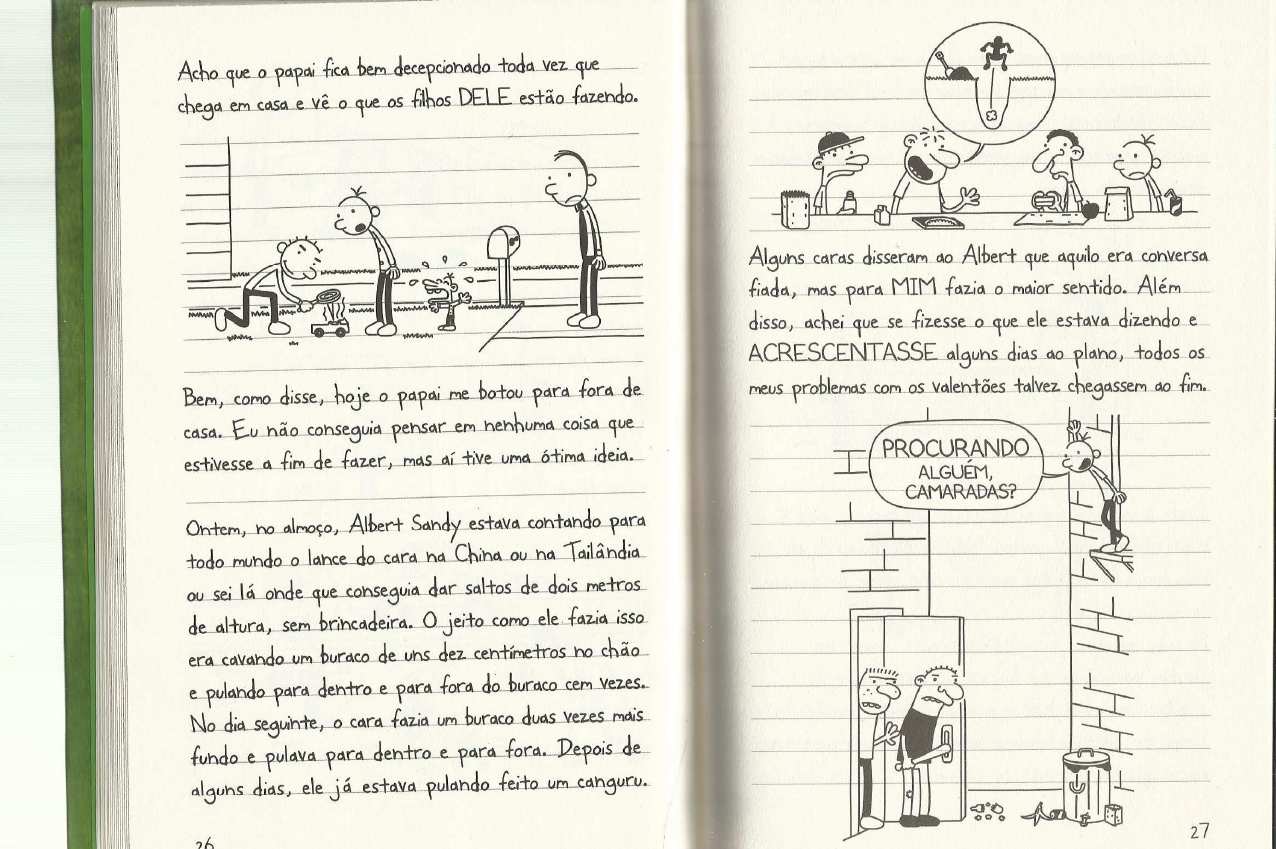 Acho que o papai fica bem decepcionado toda vez que
chega em casa e vê o que os filhos DELE estão fazendo.
Bem, como disse, hoje o papai me botou para fora de
casa. Eu não conseguia pensar em nenhuma coisa que
estivesse a fim de fazer, mas aí tive uma ótima ideia.
Ontem, no almoço, Albert Sandy estava contando para
todo mundo o lance do cara na China ou na Tailândia
ou sei lá onde que conseguia dar saltos de dois metros
de altura, sem brincadeira. O jeito como ele fazia isso
era cavando um buraco de uns dez centímetros no chão
e pulando para dentro e para fora do buraco cem vezes.
No dia seguinte, o cara fazia um buraco duas vezes mais
fundo e pulava para dentro e para fora. Depois de
alguns dias, ele já estava pulando feito um canguru.
26
Alguns caras disseram ao Albert que aquilo era conversa
fiada, mas para MIM fazia o maior sentido. Além
disso, achei que se fizesse o que ele estava dizendo e
ACRESCENTASSE alguns dias ao plano, todos os
meus problemas com os valentões talvez chegassem ao fim.
PROCURANDO
ALGUÉM,
CAMARADAS?
27